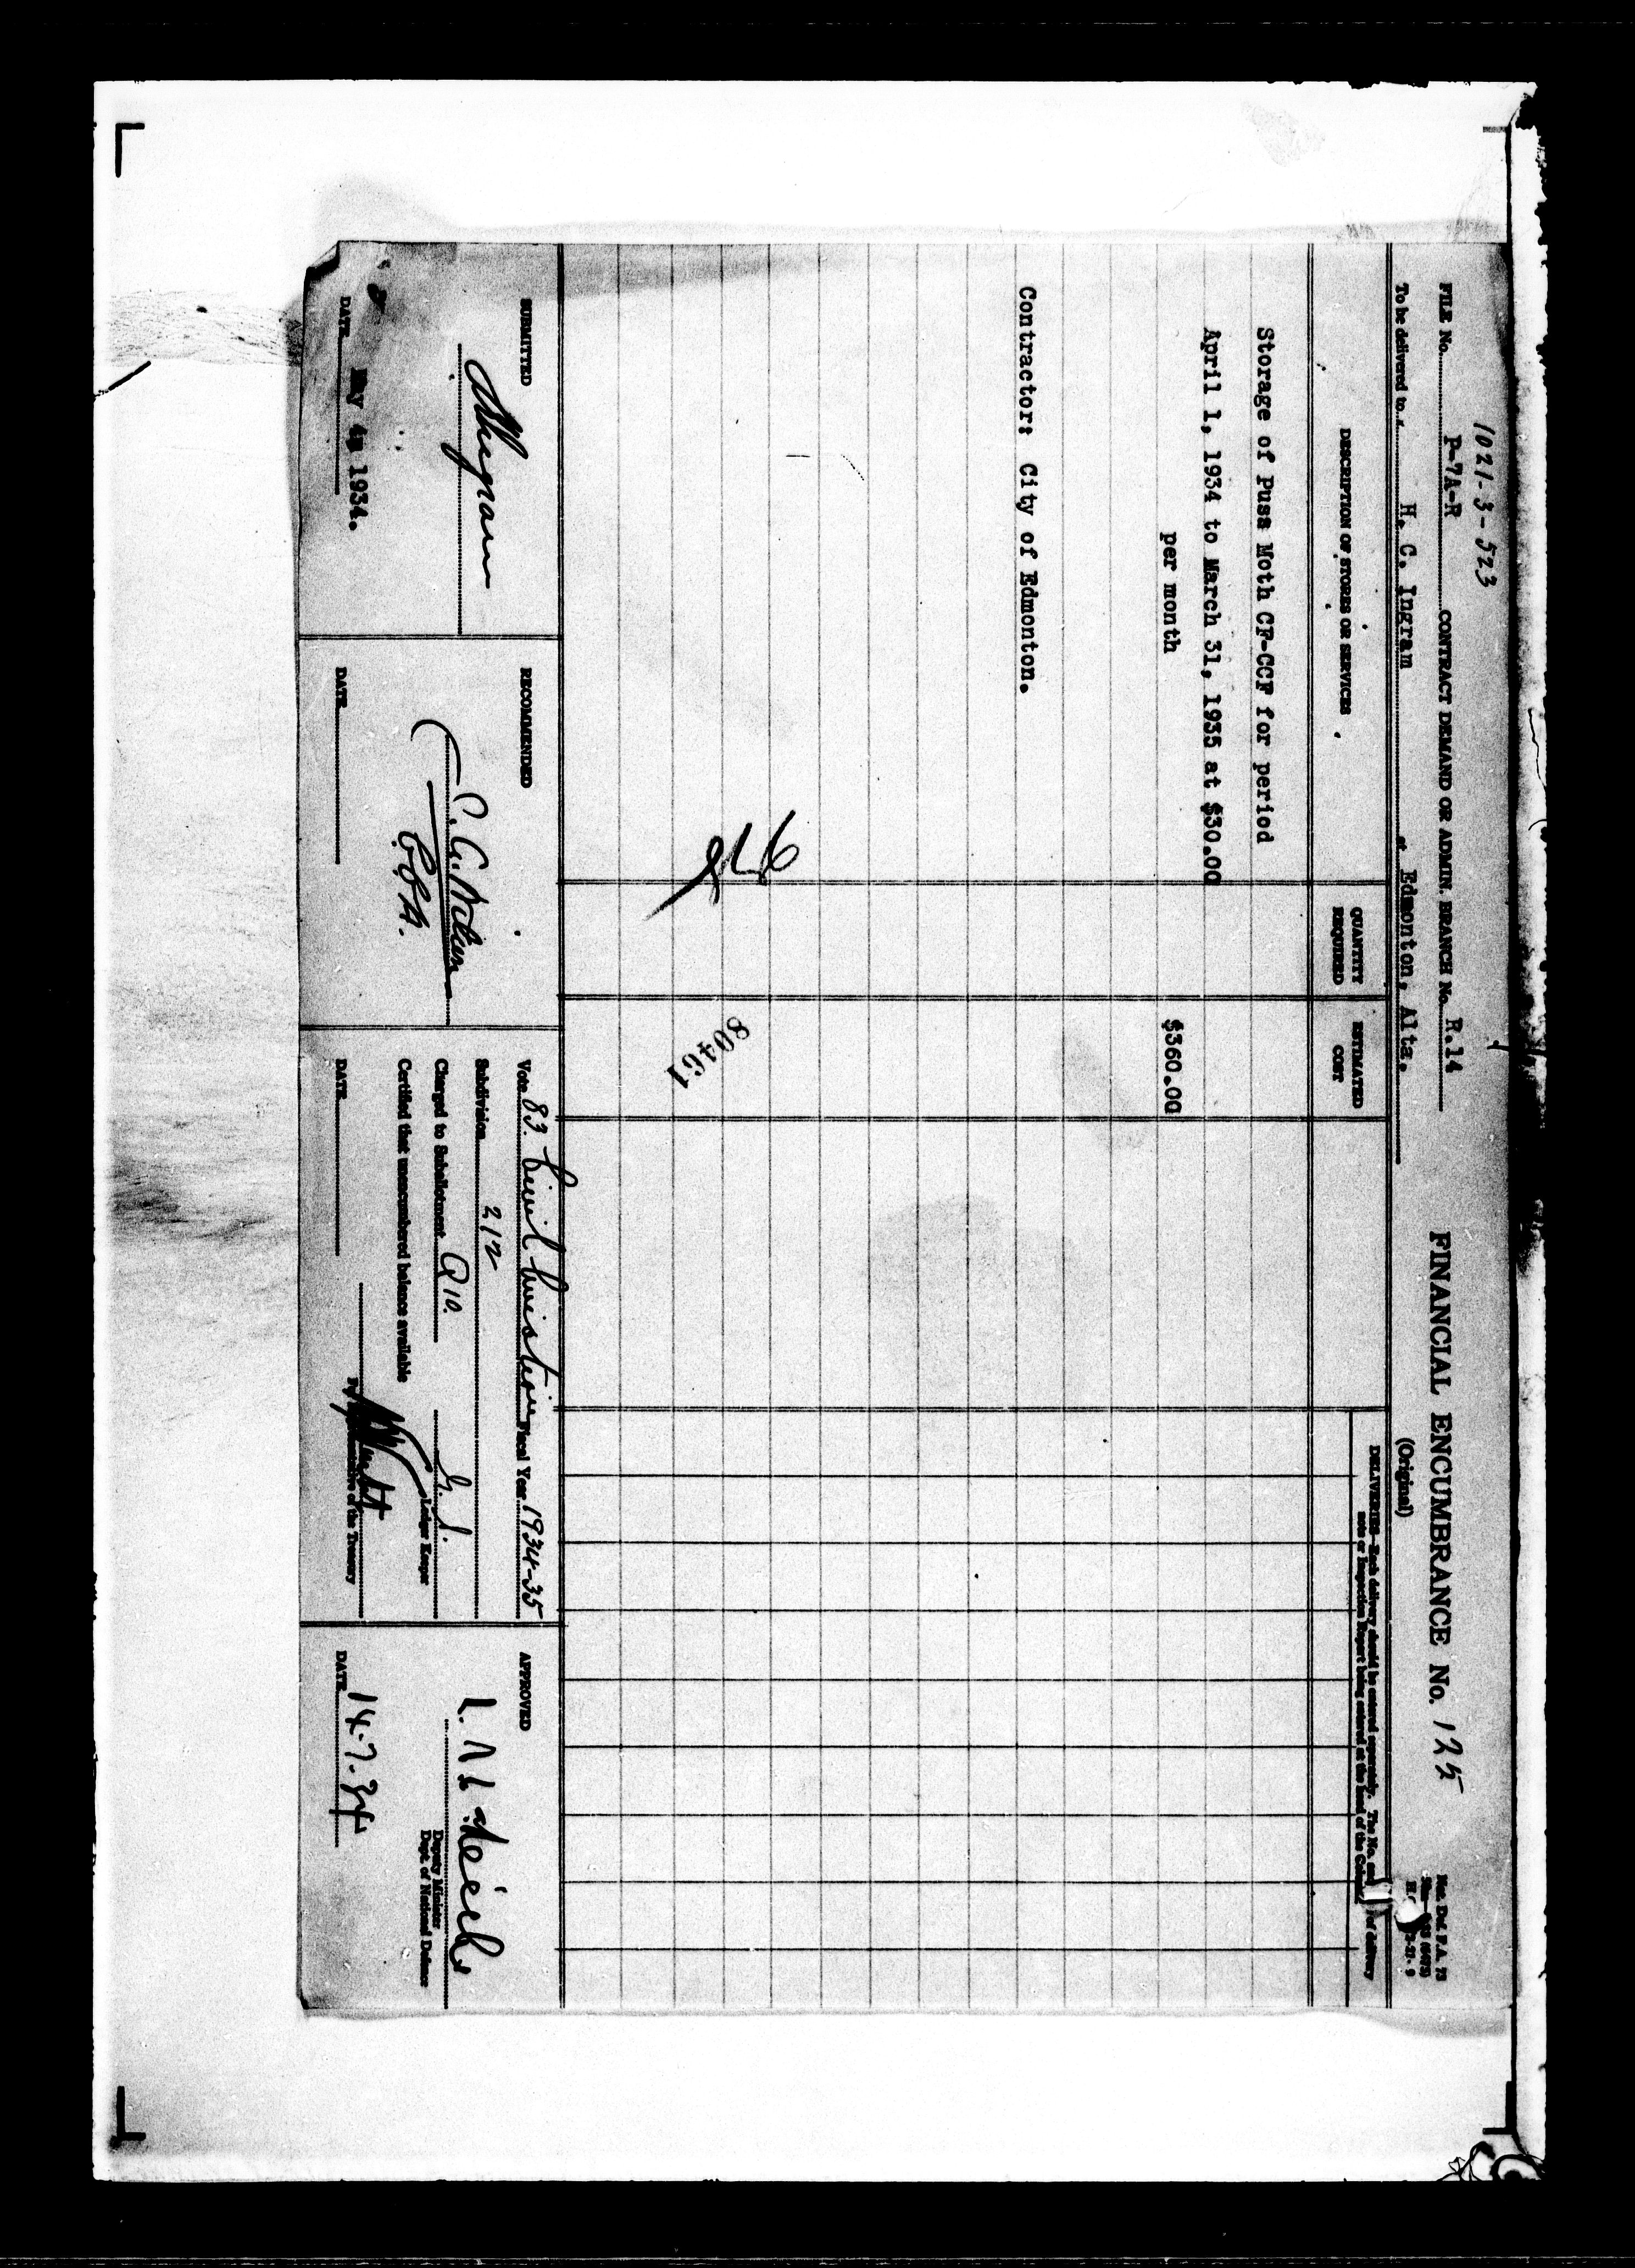 1021-3-523
FILE No. P-7A-R CONTRACT DEMAND OR ADMIN. BRANCH No. R.14
FINANCIAL ENCUMBRANCE No. 125
(Original)
Nat. Def. F.A. 73
To be delivered to H. C. Ingram at Edmonton, Alta.
DESCRIPTION OF STORES OR SERVICES
QUANTITY REQUIRED
ESTIMATED COST
DELIVERIES—Each delivery should be entered separately. The No. and of delivery
note or Inspection Report being entered at the head of the Column
Storage of Puss Moth CF-CCF for period
April 1, 1934 to March 31, 1935 at $30.00
per month $360.00
Contractor: City of Edmonton.
80461
SUBMITTED
DATE May 4, 1934.
RECOMMENDED
DATE
Vote 83 Civil Aviation Fiscal Year 1934-35
Subdivision 212
Charged to Suballotment Q 10.
Ledger Keeper
Certified that unencumbered balance available
DATE
Representative of the Treasury
APPROVED
Deputy Minister
Dept. of National Defence
DATE 14.7.34